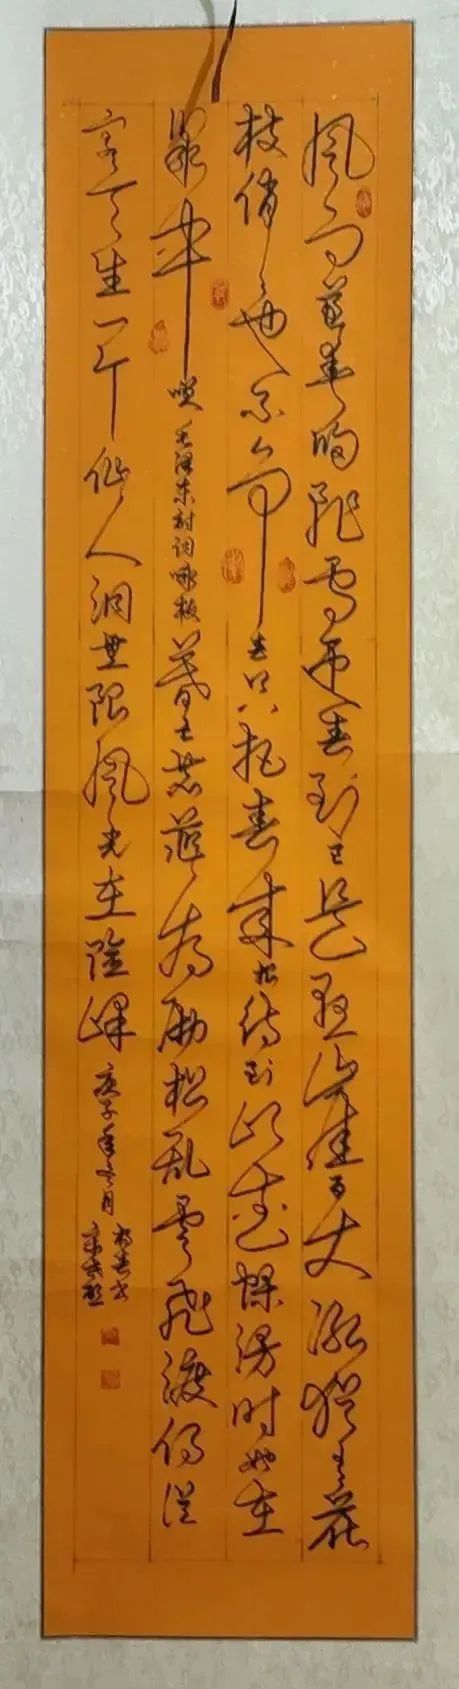 风雨送春归飛雪迎春到已是悬崖百丈冰犹有花
枝俏也不争春只把春来报待到山花烂漫时她在
丛中笑毛泽东诗词咏梅暮色苍茫看劲松乱云飞渡仍从
容天生一个仙人洞无限风光在险峰庚子年冬月